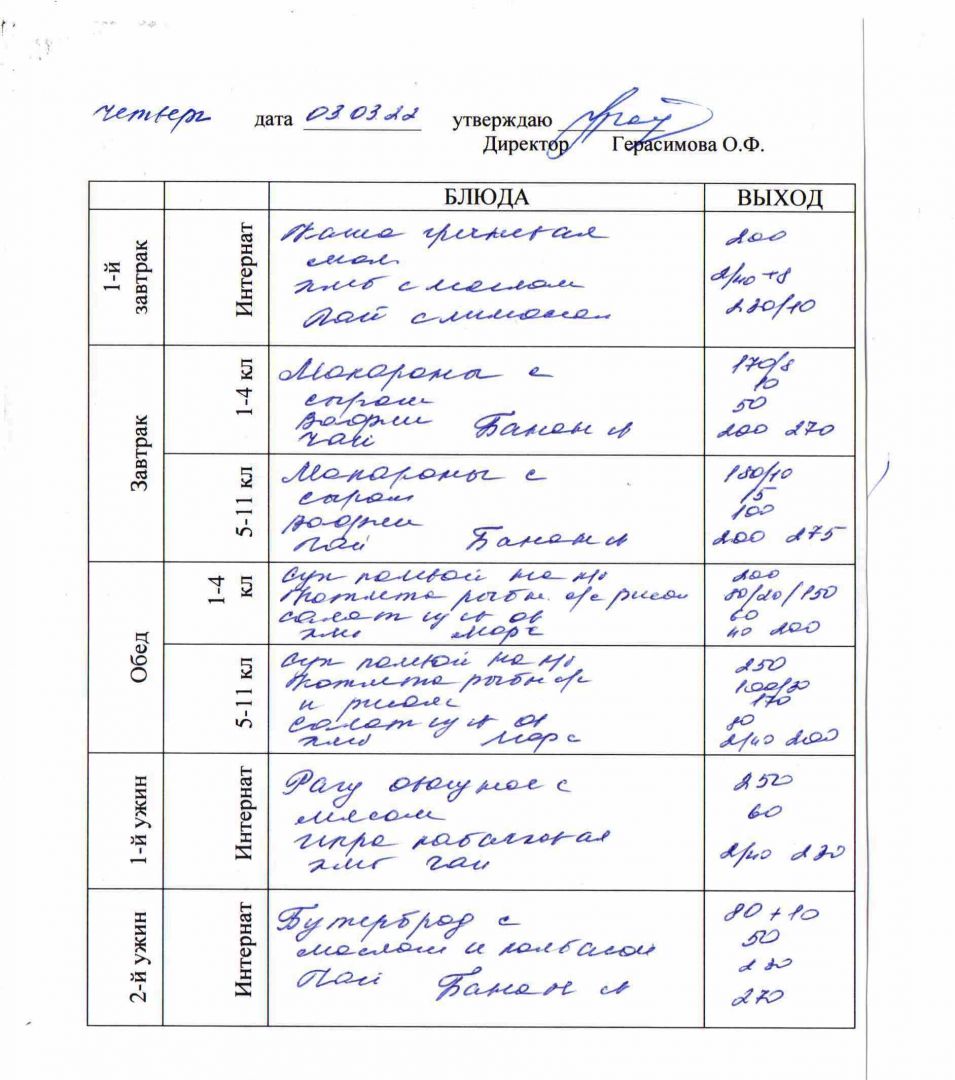 четверг дата 03 03 22 утверждаю
Директор Герасимова О.Ф.
БЛЮДА ВЫХОД
1-й завтрак Интернат
Каша гречневая 200
мол
хлеб с маслом 2/40 +8
Чай с лимоном 230/10
Завтрак
1-4 кл
Макароны с 170/8
сыром 10
вафли 50
чай Банан 200 270
5-11 кл
Макароны с 180/10
сыром 15
вафли 100
Чай Банан 200 275
Обед
1-4 кл
Суп полевой на м/б 200
Котлета рыбн. с/с рисом 80/20/150
салат 60
хлеб морс 40 200
5-11 кл
Суп полевой на м/б 250
Котлета рыбн 100/30
и рисом 170
салат 80
хлеб морс 2/40 200
1-й ужин Интернат
Рагу овощное с 250
мясом
Икра кабачковая 60
хлеб чай 2/40 230
2-й ужин Интернат
Бутерброд с 80 + 10
маслом и колбасой 50
Чай 230
Банан 270